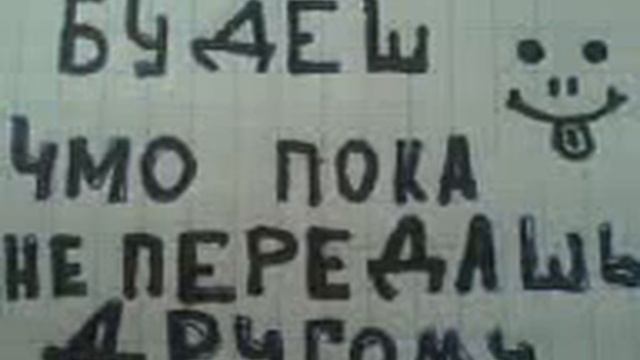 БУДЕШ
ЧМО ПОКА
НЕ ПЕРЕДАШЬ
ДРУГОМУ